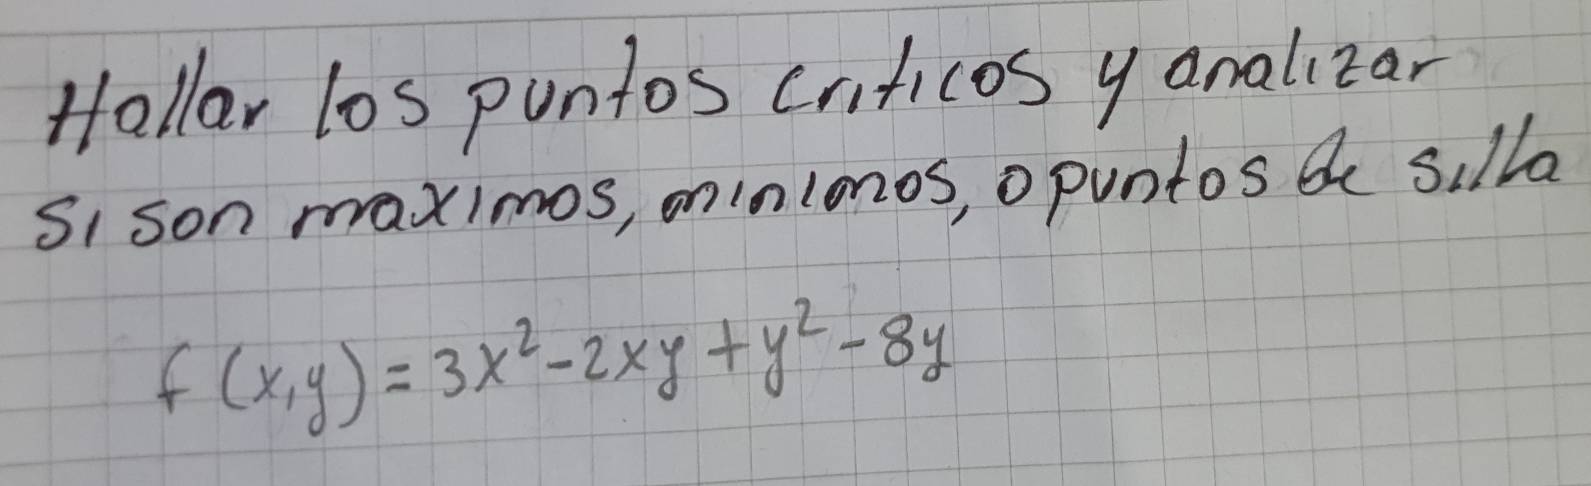 Hallar los puntos criticos y analizar
si son maximos, minimos, o puntos de silla
f(x,y) = 3x² - 2xy + y² - 8y